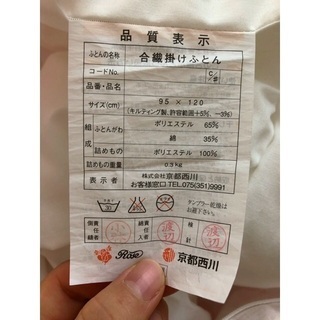 品質表示
ふとんの名称 合繊掛けふとん
コードNo. C/#
品番・品名
サイズ(cm) 95 × 120
(キルティング製、許容範囲+5%、-3%)
組成 ふとんがわ ポリエステル 65%
綿 35%
詰めもの ポリエステル 100%
詰めもの重量 0.3kg
表示者 株式会社 京都西川
お客様窓口 TEL 075(351)9991
タンブラー乾燥は
お避け下さい
検針 渡辺
Rose 京都西川